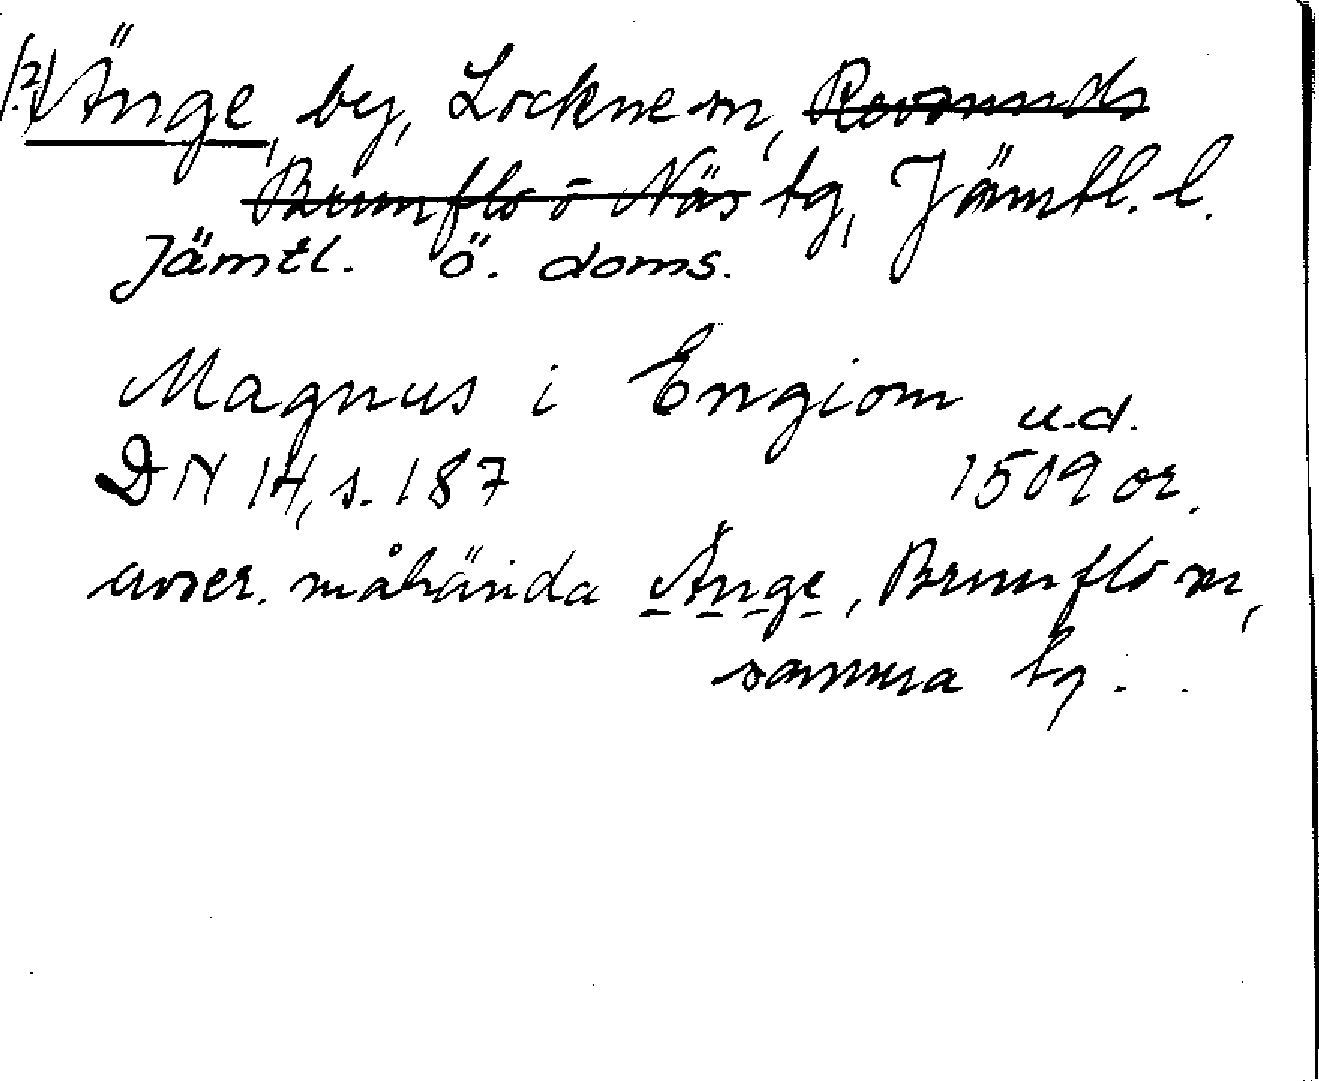 (?) Änge, by, Lockne sn, Revsunds
Brunflo o Näs tg, Jämtl. l.
Jämtl. ö. doms.
Magnus i Engiom u.d.
DN 14, s. 187 1509 or.
avser måhända Änge, Brunflo sn,
samma tg.